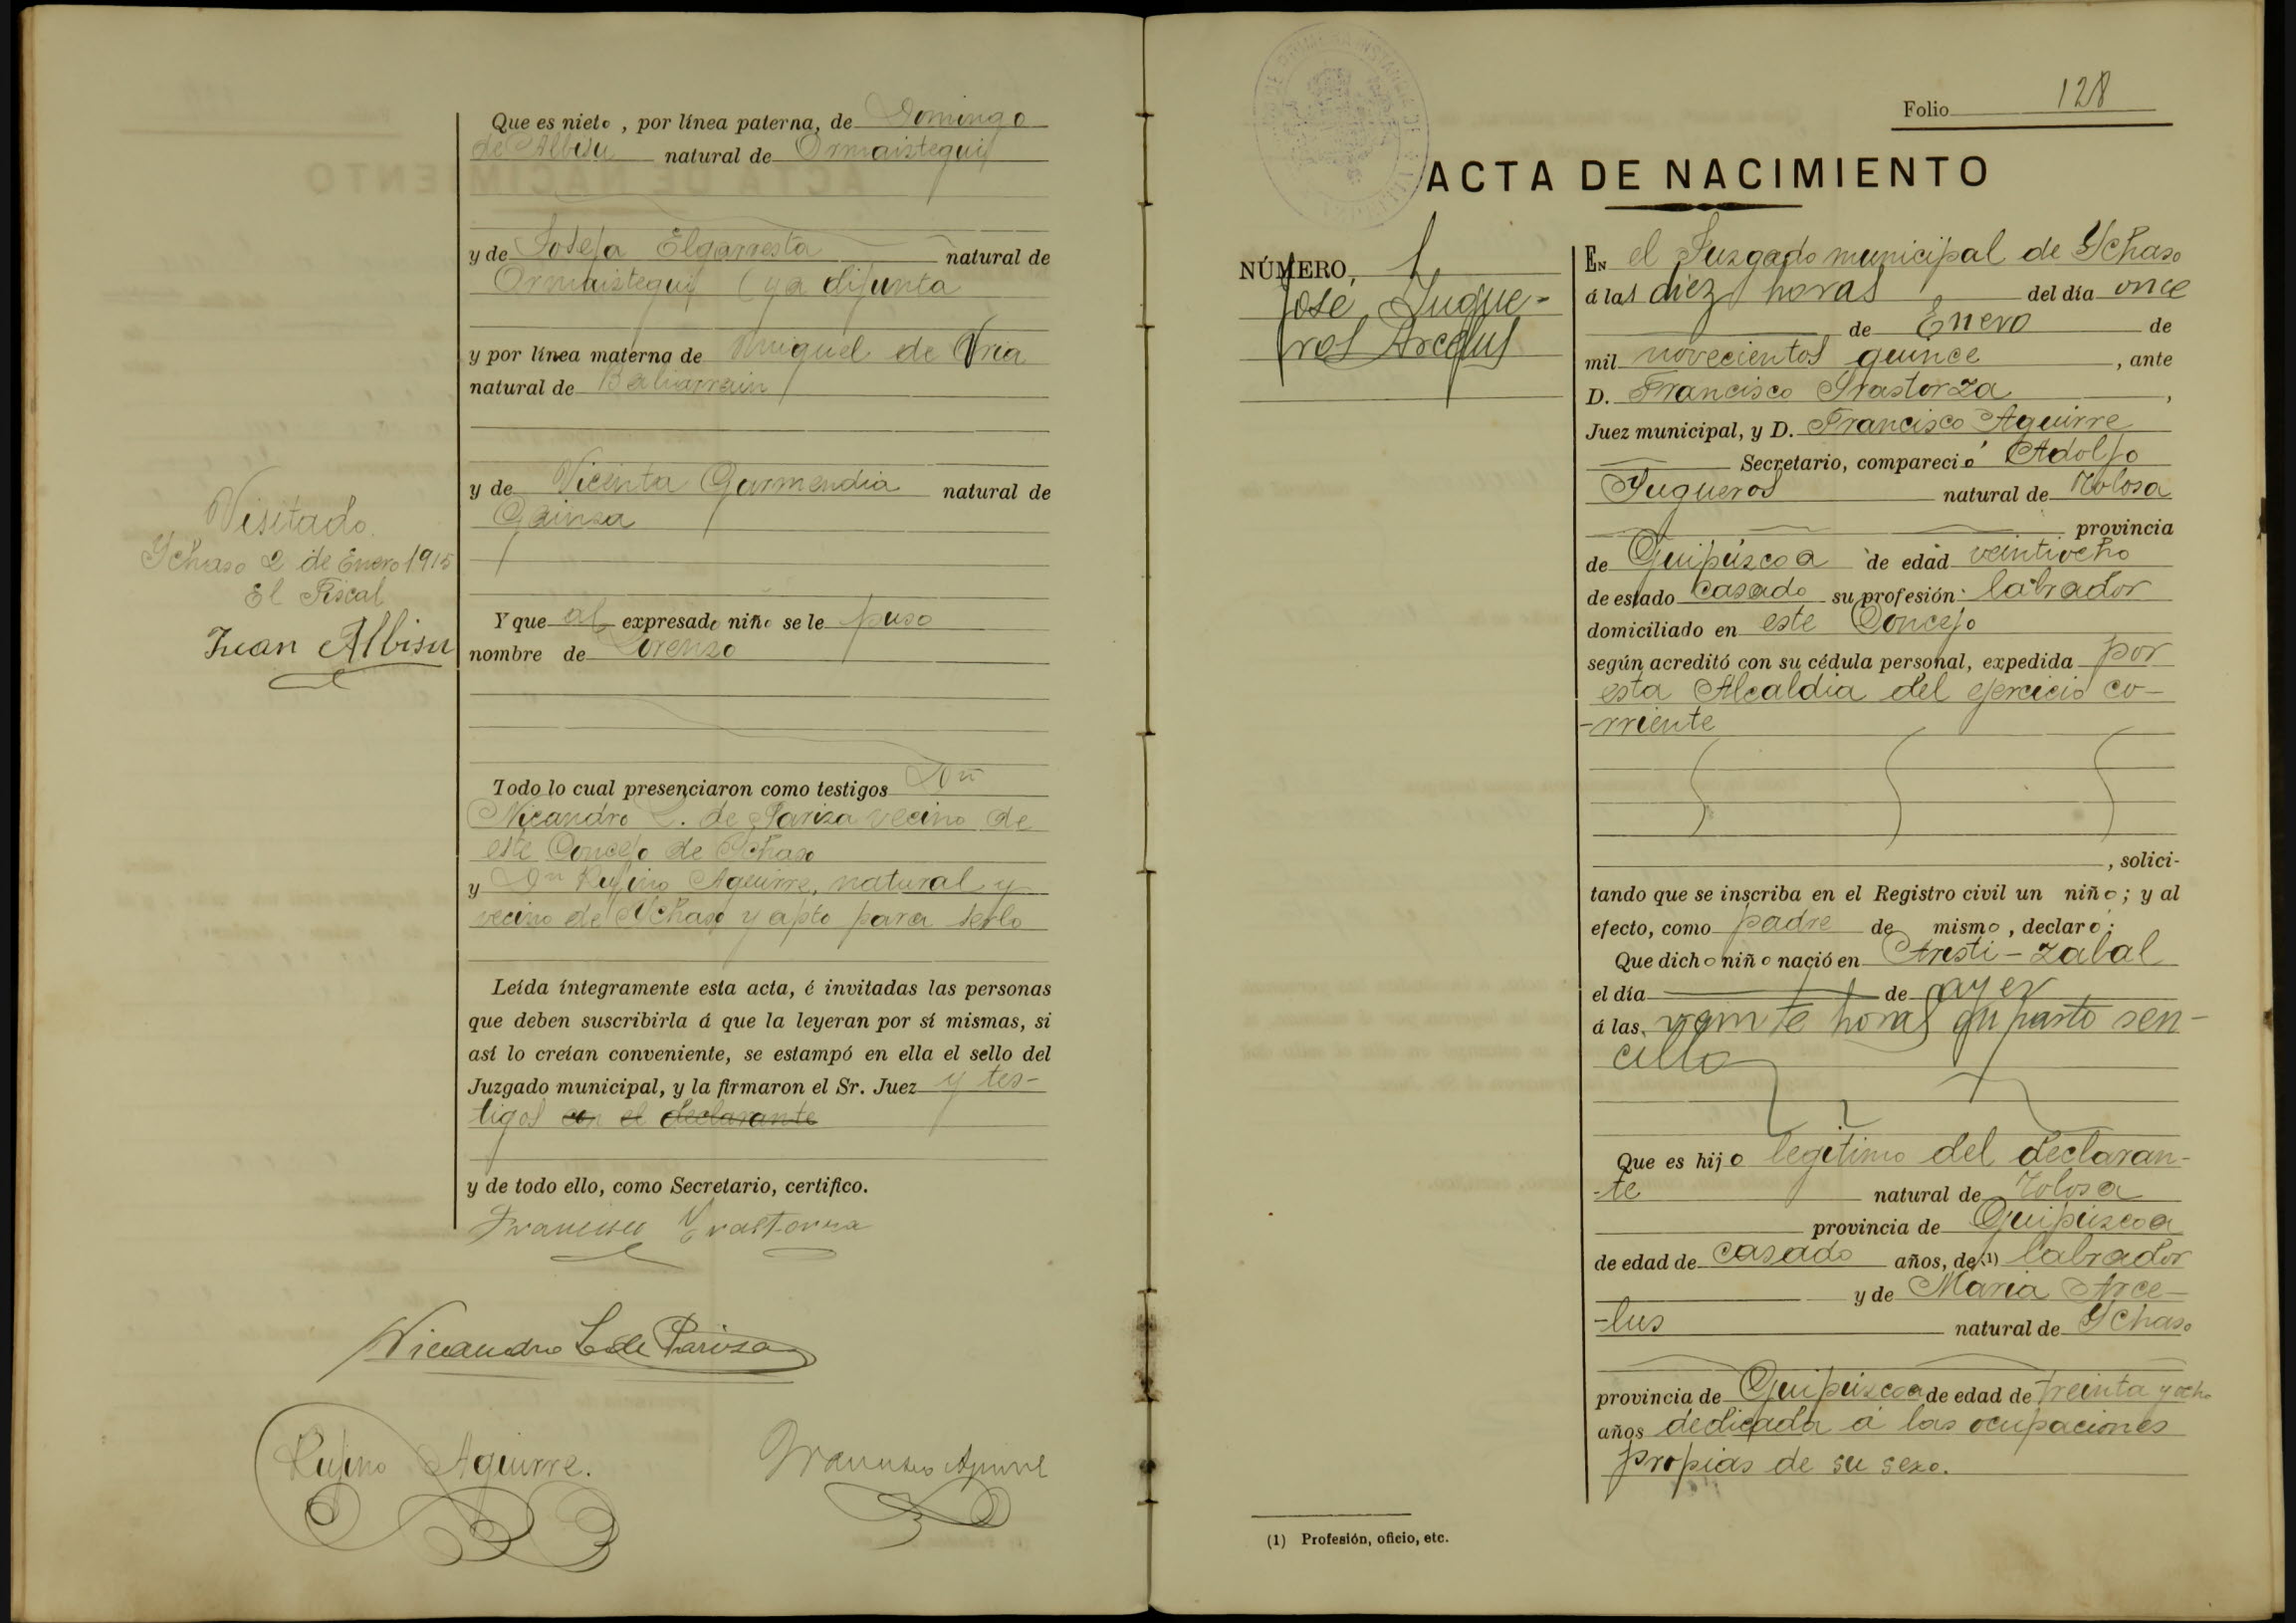 Que es nieto, por línea paterna, de Domingo
de Albisu natural de Ormaiztegui
y de Josefa Elgarresta natural de
Ormaiztegui (ya difunta
y por línea materna de Miguel de Uria
natural de Baliarrain
y de Vicenta Garmendia natural de
Gainza
Y que al expresado niño se le puso
nombre de Lorenzo
Todo lo cual presenciaron como testigos Don
Nicandro L. de Pariza vecino de
este Concejo de Ychaso
y Dn Rufino Aguirre, natural y
vecino de Ychaso y apto para serlo
Leída íntegramente esta acta, é invitadas las personas
que deben suscribirla á que la leyeran por sí mismas, si
así lo creían conveniente, se estampó en ella el sello del
Juzgado municipal, y la firmaron el Sr. Juez y tes-
tigos con el declarante
y de todo ello, como Secretario, certifico.
Francisco Yrastorza
Nicandro L. de Pariza
Rufino Aguirre.
Francisco Aguirre
Visitado.
Ychaso 2 de Enero 1915
El Fiscal
Juan Albisu
Folio 128
ACTA DE NACIMIENTO
NÚMERO 1
José Jugue-
ros Arcelus
EN el Juzgado municipal de Ychaso
á las diez horas del día once
de Enero de
mil novecientos quince, ante
D. Francisco Yrastorza,
Juez municipal, y D. Francisco Aguirre
Secretario, compareció Adolfo
Jugueros natural de Tolosa
provincia
de Guipúzcoa de edad veintiocho
de estado casado su profesión: labrador
domiciliado en este Concejo
según acreditó con su cédula personal, expedida por
esta Alcaldia del ejercicio co-
-rriente
, solici-
tando que se inscriba en el Registro civil un niño; y al
efecto, como padre de mismo, declaró:
Que dicho niño nació en Aresti-zabal
el día de ayer
á las veinte horas en parto sen-
cillo
Que es hijo legítimo del declaran-
-te natural de Tolosa
provincia de Guipúzcoa
de edad de casado años, de (1) labrador
y de Maria Arce-
-lus natural de Ychaso
provincia de Guipúzcoa de edad de treinta y ocho
años dedicada á las ocupaciones
propias de su sexo.
(1) Profesión, oficio, etc.